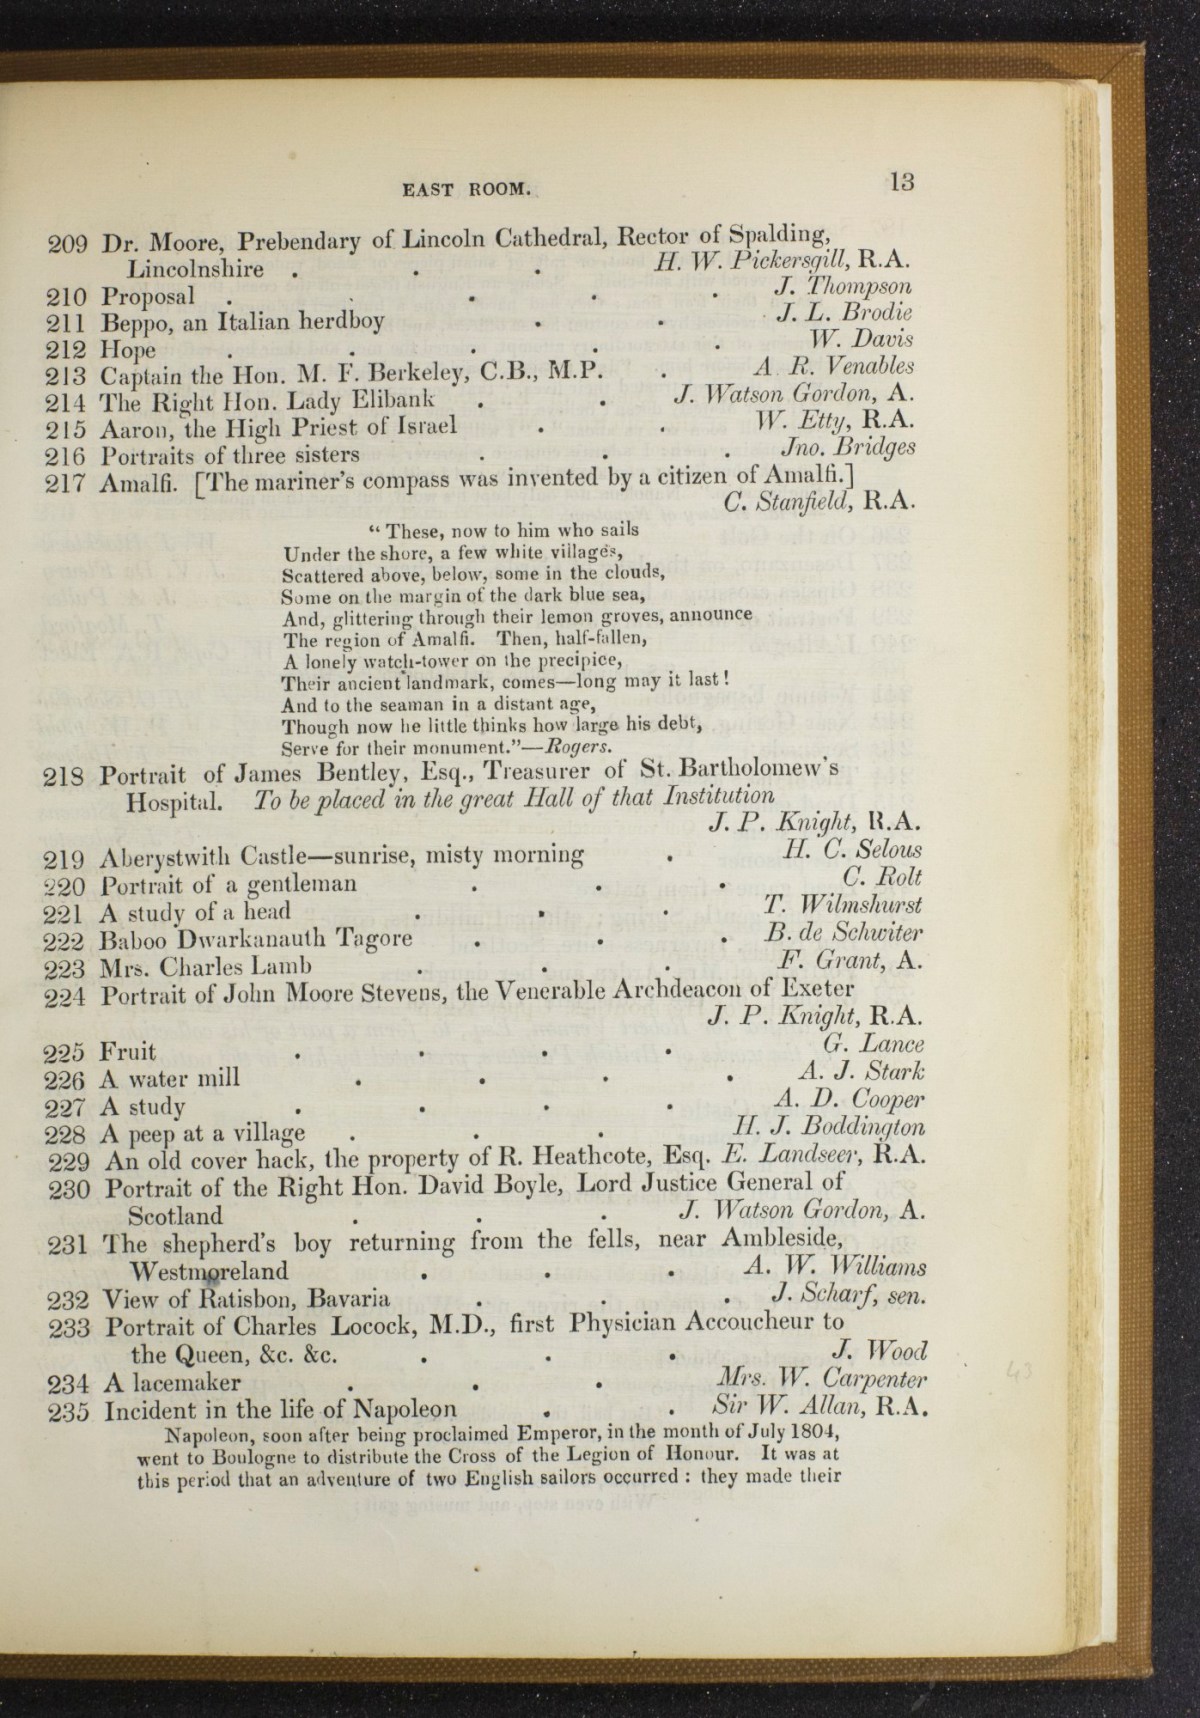 EAST ROOM. 13
209 Dr. Moore, Prebendary of Lincoln Cathedral, Rector of Spalding,
Lincolnshire . . . H. W. Pickersgill, R.A.
210 Proposal . . . . . J. Thompson
211 Beppo, an Italian herdboy . . . J. L. Brodie
212 Hope . . . . . W. Davis
213 Captain the Hon. M. F. Berkeley, C.B., M.P. . A. R. Venables
214 The Right Hon. Lady Elibank . . J. Watson Gordon, A.
215 Aaron, the High Priest of Israel . . W. Etty, R.A.
216 Portraits of three sisters . . . Jno. Bridges
217 Amalfi. [The mariner's compass was invented by a citizen of Amalfi.]
C. Stanfield, R.A.
“ These, now to him who sails
Under the shore, a few white villages,
Scattered above, below, some in the clouds,
Some on the margin of the dark blue sea,
And, glittering through their lemon groves, announce
The region of Amalfi. Then, half-fallen,
A lonely watch-tower on the precipice,
Their ancient landmark, comes—long may it last!
And to the seaman in a distant age,
Though now he little thinks how large his debt,
Serve for their monument.”—Rogers.
218 Portrait of James Bentley, Esq., Treasurer of St. Bartholomew's
Hospital. To be placed in the great Hall of that Institution
J. P. Knight, R.A.
219 Aberystwith Castle—sunrise, misty morning . H. C. Selous
220 Portrait of a gentleman . . . C. Rolt
221 A study of a head . . . T. Wilmshurst
222 Baboo Dwarkanauth Tagore . . . B. de Schwiter
223 Mrs. Charles Lamb . . . F. Grant, A.
224 Portrait of John Moore Stevens, the Venerable Archdeacon of Exeter
J. P. Knight, R.A.
225 Fruit . . . . G. Lance
226 A water mill . . . . A. J. Stark
227 A study . . . . A. D. Cooper
228 A peep at a village . . . H. J. Boddington
229 An old cover hack, the property of R. Heathcote, Esq. E. Landseer, R.A.
230 Portrait of the Right Hon. David Boyle, Lord Justice General of
Scotland . . . J. Watson Gordon, A.
231 The shepherd's boy returning from the fells, near Ambleside,
Westmoreland . . . A. W. Williams
232 View of Ratisbon, Bavaria . . . J. Scharf, sen.
233 Portrait of Charles Locock, M.D., first Physician Accoucheur to
the Queen, &c. &c. . . . J. Wood
234 A lacemaker . . . Mrs. W. Carpenter
235 Incident in the life of Napoleon . . Sir W. Allan, R.A.
Napoleon, soon after being proclaimed Emperor, in the month of July 1804,
went to Boulogne to distribute the Cross of the Legion of Honour. It was at
this period that an adventure of two English sailors occurred : they made their
43